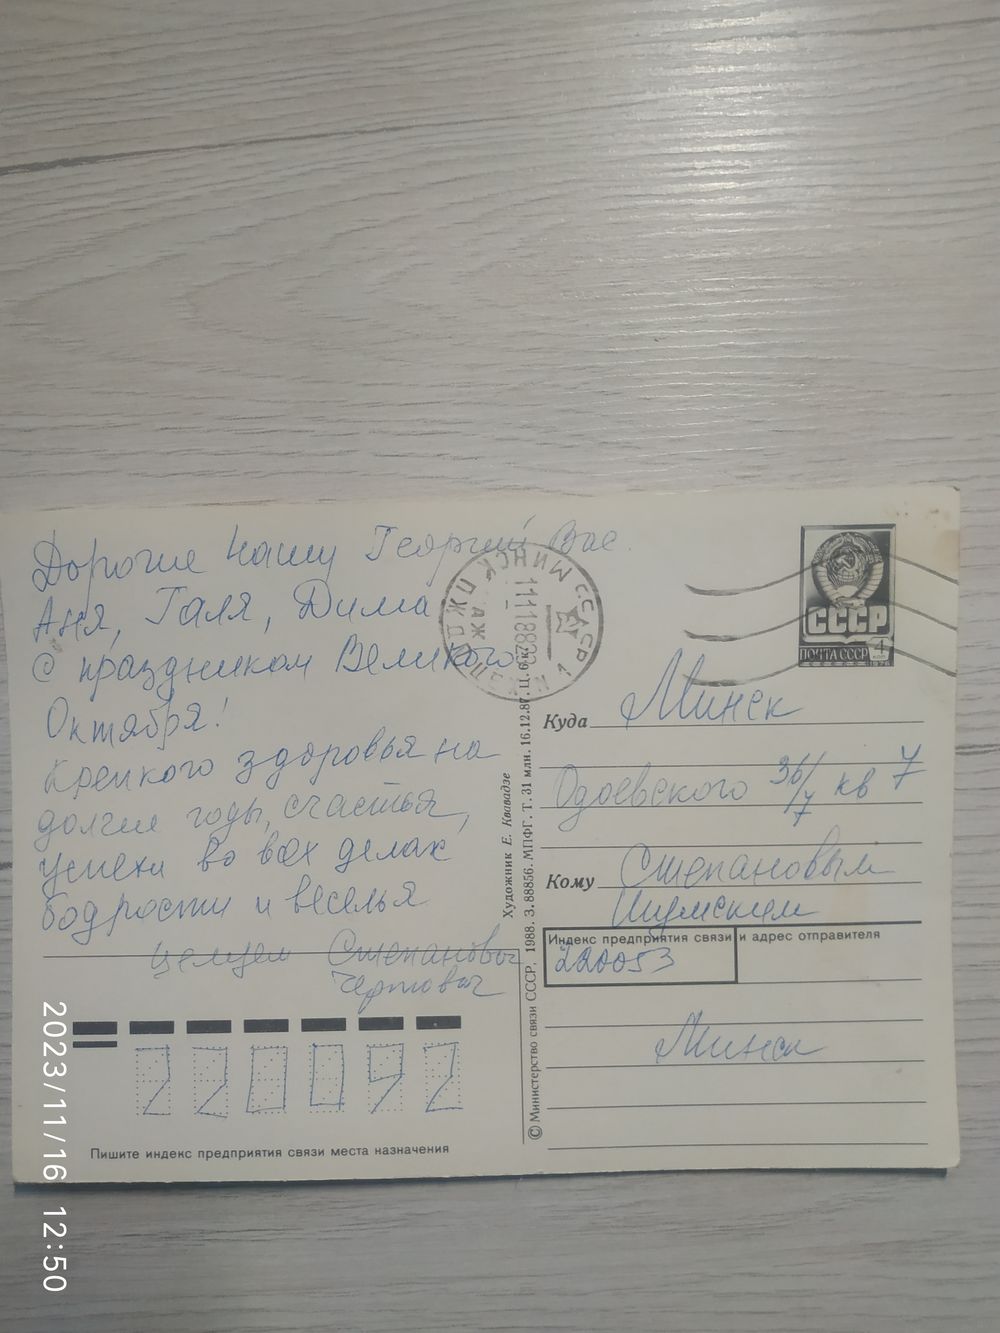 Дорогие наши Георгий Вас.
Аня, Галя, Дима
С праздником Великого
Октября!
Крепкого здоровья на
долгие годы, счастья,
успехи во всех делах
бодрости и веселья
целуем Степановы
Пишите индекс предприятия связи места назначения
220092
© Министерство связи СССР, 1988. З. 88856. МПФГ. Т. 31 млн. 16.12.87. Ц. 6 к.
Художник Е. Квавадзе
МИНСК ПЖДП
СССР
ПОЧТА СССР
4
1976
Куда Минск
Одоевского 36/7 кв 7
Кому Степановым
Индекс предприятия связи и адрес отправителя
220053
Минск
2023/11/16 12:50